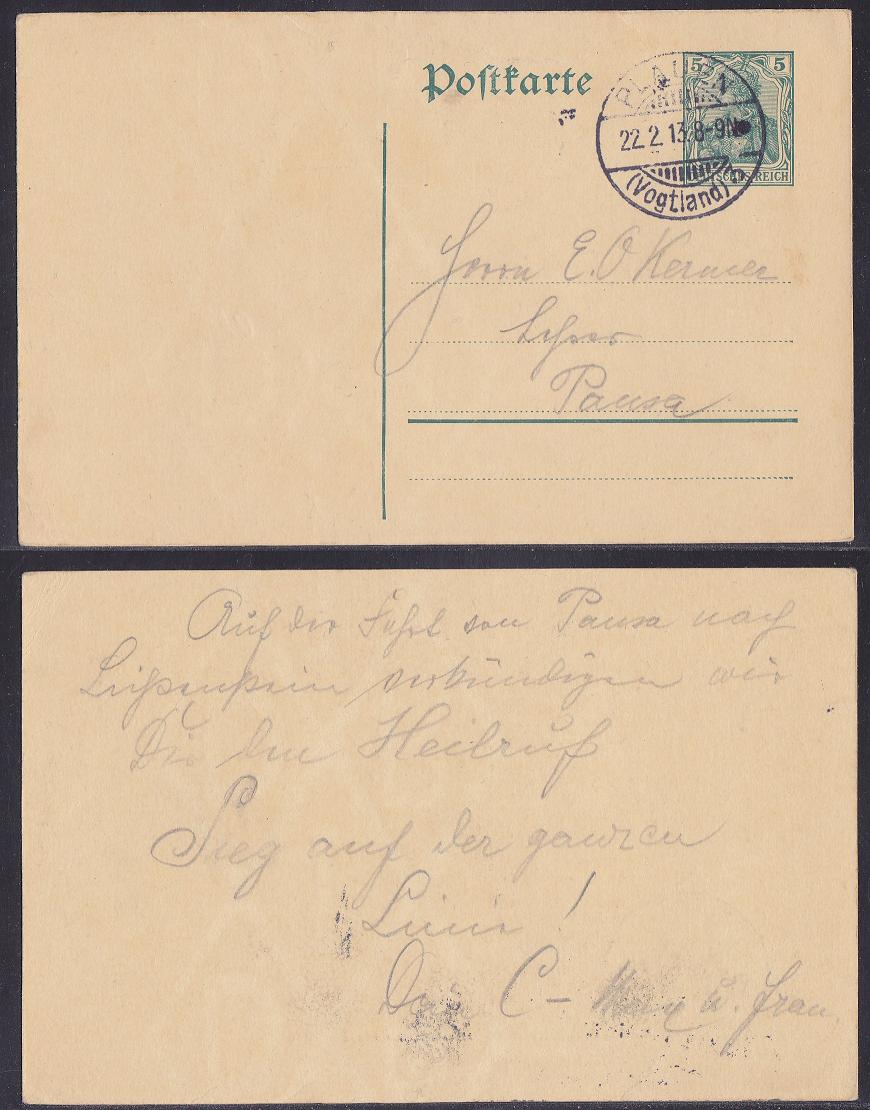 Postkarte
PLAUEN
1
22.2.13.8-9N
(Vogtland)
5 5
DEUTSCHES REICH
Herrn E. O Kermer
Lehrer
Pausa
Auf der Fahrt von Pausa nach
verkündigen wir
Dir den Heilruf
Sieg auf der ganzen
Linie!
Dein C- Max u. Frau